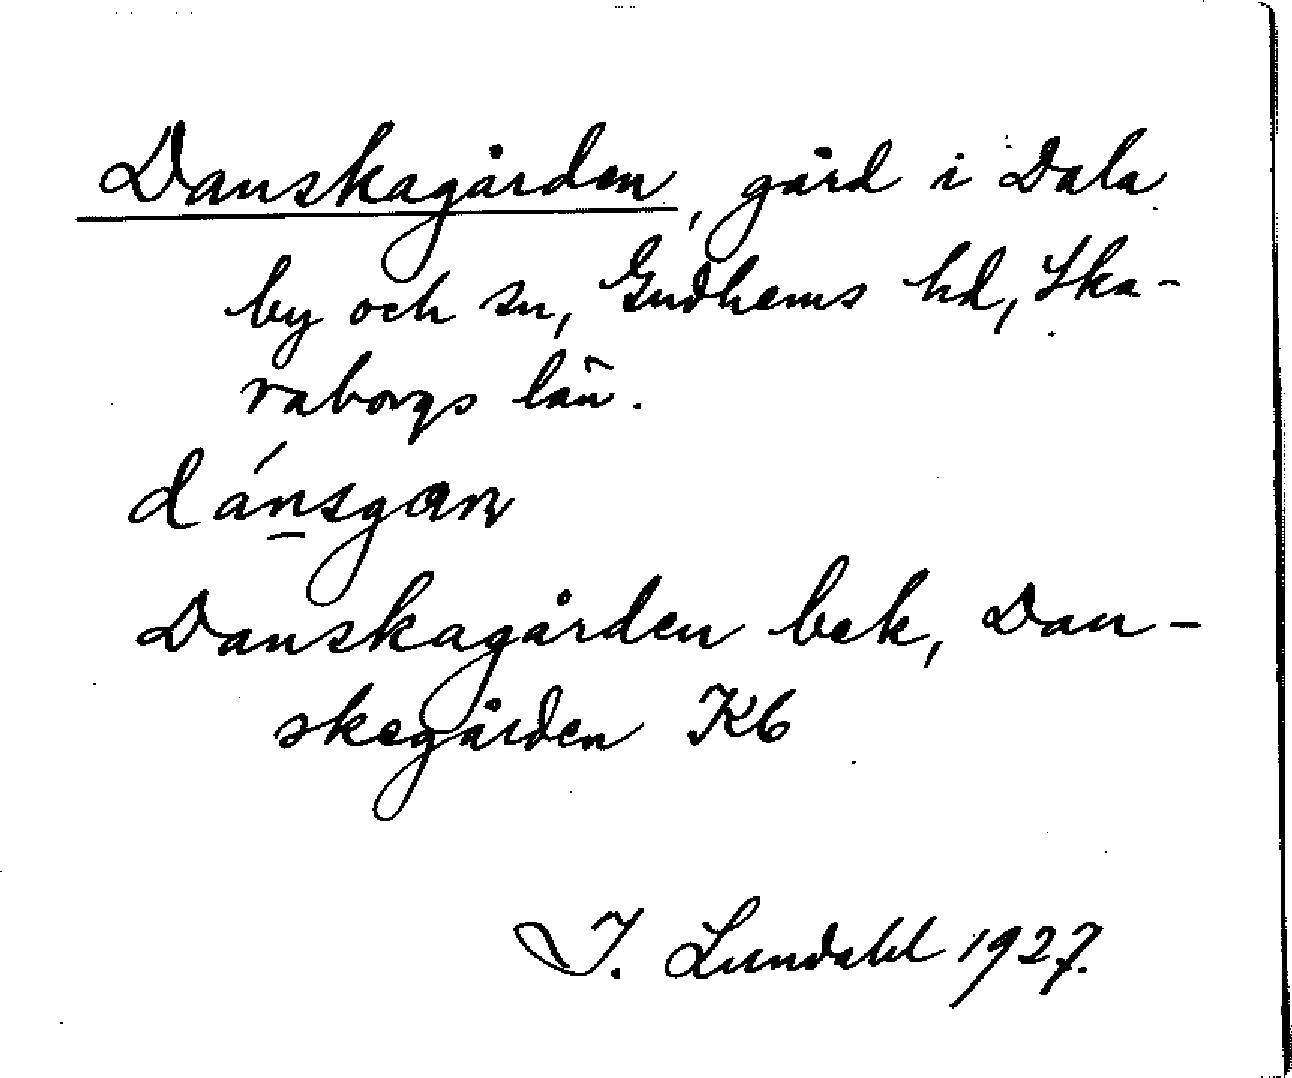 Danskagården, gård i Dala
by och sn, Gudhems hd, Ska-
raborgs län.
dánsgan
Danskagården bek, Dan-
skegården Kb
I. Lundahl 1927.